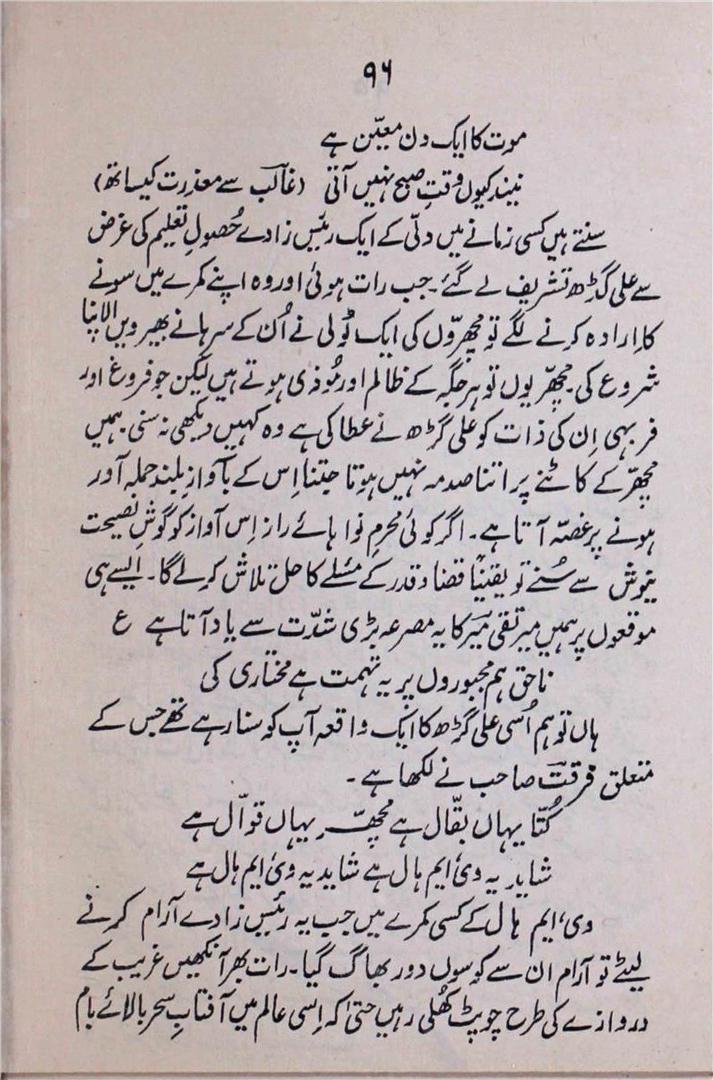 ۹۶
موت کا ایک دن معیّن ہے
نیند کیوں وقتِ صبح نہیں آتی (غالب سے معذرت کیساتھ)
سنتے ہیں کسی زمانے میں دلّی کے ایک رئیس زادے حُصولِ تعلیم کی غرض
سے علی گڈھ تشریف لے گئے۔ جب رات ہوئی اور وہ اپنے کمرے میں سونے
کا ارادہ کرنے لگے تو مچھروّں کی ایک ٹولی نے اُن کے سرہانے بھیرویں الاپنا
شروع کی۔ مچھّر یوں تو ہر جگہ کے ظالم اور مُوذی ہوتے ہیں لیکن جو فروغ اور
فربہی اِن کی ذات کو علی گڑھ نے عطا کی ہے وہ کہیں دیکھی نہ سنی۔ ہمیں
مچھّر کے کاٹنے پر اتنا صدمہ نہیں ہوتا جتنا اِس کے بآوازِ بلند حملہ آور
ہونے پر غصّہ آتا ہے۔ اگر کوئی محرمِ نوا ہائے راز اِس آواز کو گوشِ نصیحت
نیوش سے سُنے تو یقیناً قضا و قدر کے مسئلے کا حل تلاش کرلے گا۔ ایسے ہی
موقعوں پر ہمیں میر تقی میرؔ کا یہ مصرعہ بڑی شدّت سے یاد آتا ہے ع
ناحق ہم مجبوروں پر یہ تہمت ہے مختاری کی
ہاں تو ہم اُسی علی گڑھ کا ایک واقعہ آپ کو سنا رہے تھے جس کے
متعلق فرقتؔ صاحب نے لکھا ہے۔
کُتّا یہاں بقّال ہے مچھّر یہاں قوّال ہے
شاید یہ وی ایم ہال ہے شاید یہ وی ایم ہال ہے
وی، ایم ہال کے کسی کمرے میں جب یہ رئیس زادے آرام کرنے
لیٹے تو آرام ان سے کوسوں دور بھاگ گیا۔ رات بھر آنکھیں غریب کے
دروازے کی طرح چوپٹ کھُلی رہیں حتیٰ کہ اِسی عالم میں آفتابِ سحر بالائے بام